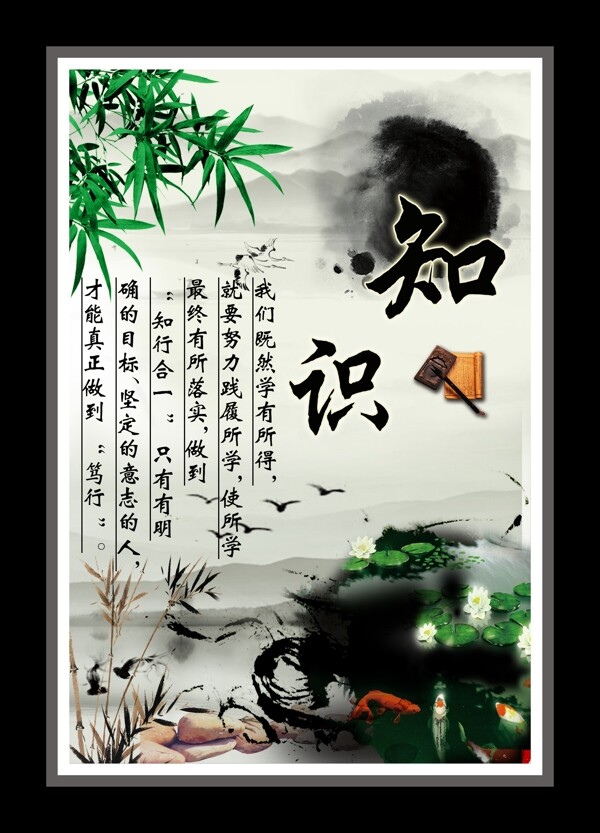 知识
我们既然学有所得，
就要努力践履所学，使所学
最终有所落实，做到
“知行合一”只有有明
确的目标、坚定的意志的人，
才能真正做到“笃行”。